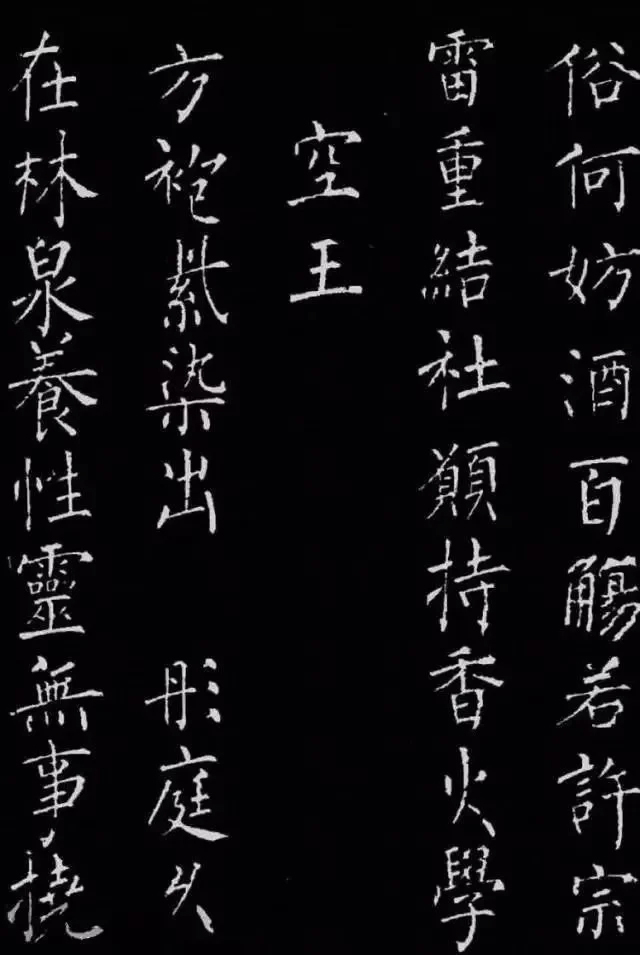 俗何妨酒百觴若許宗
雷重結社願持香火學
空王
方袍紫染出 彤庭久
在林泉養性靈無事撓